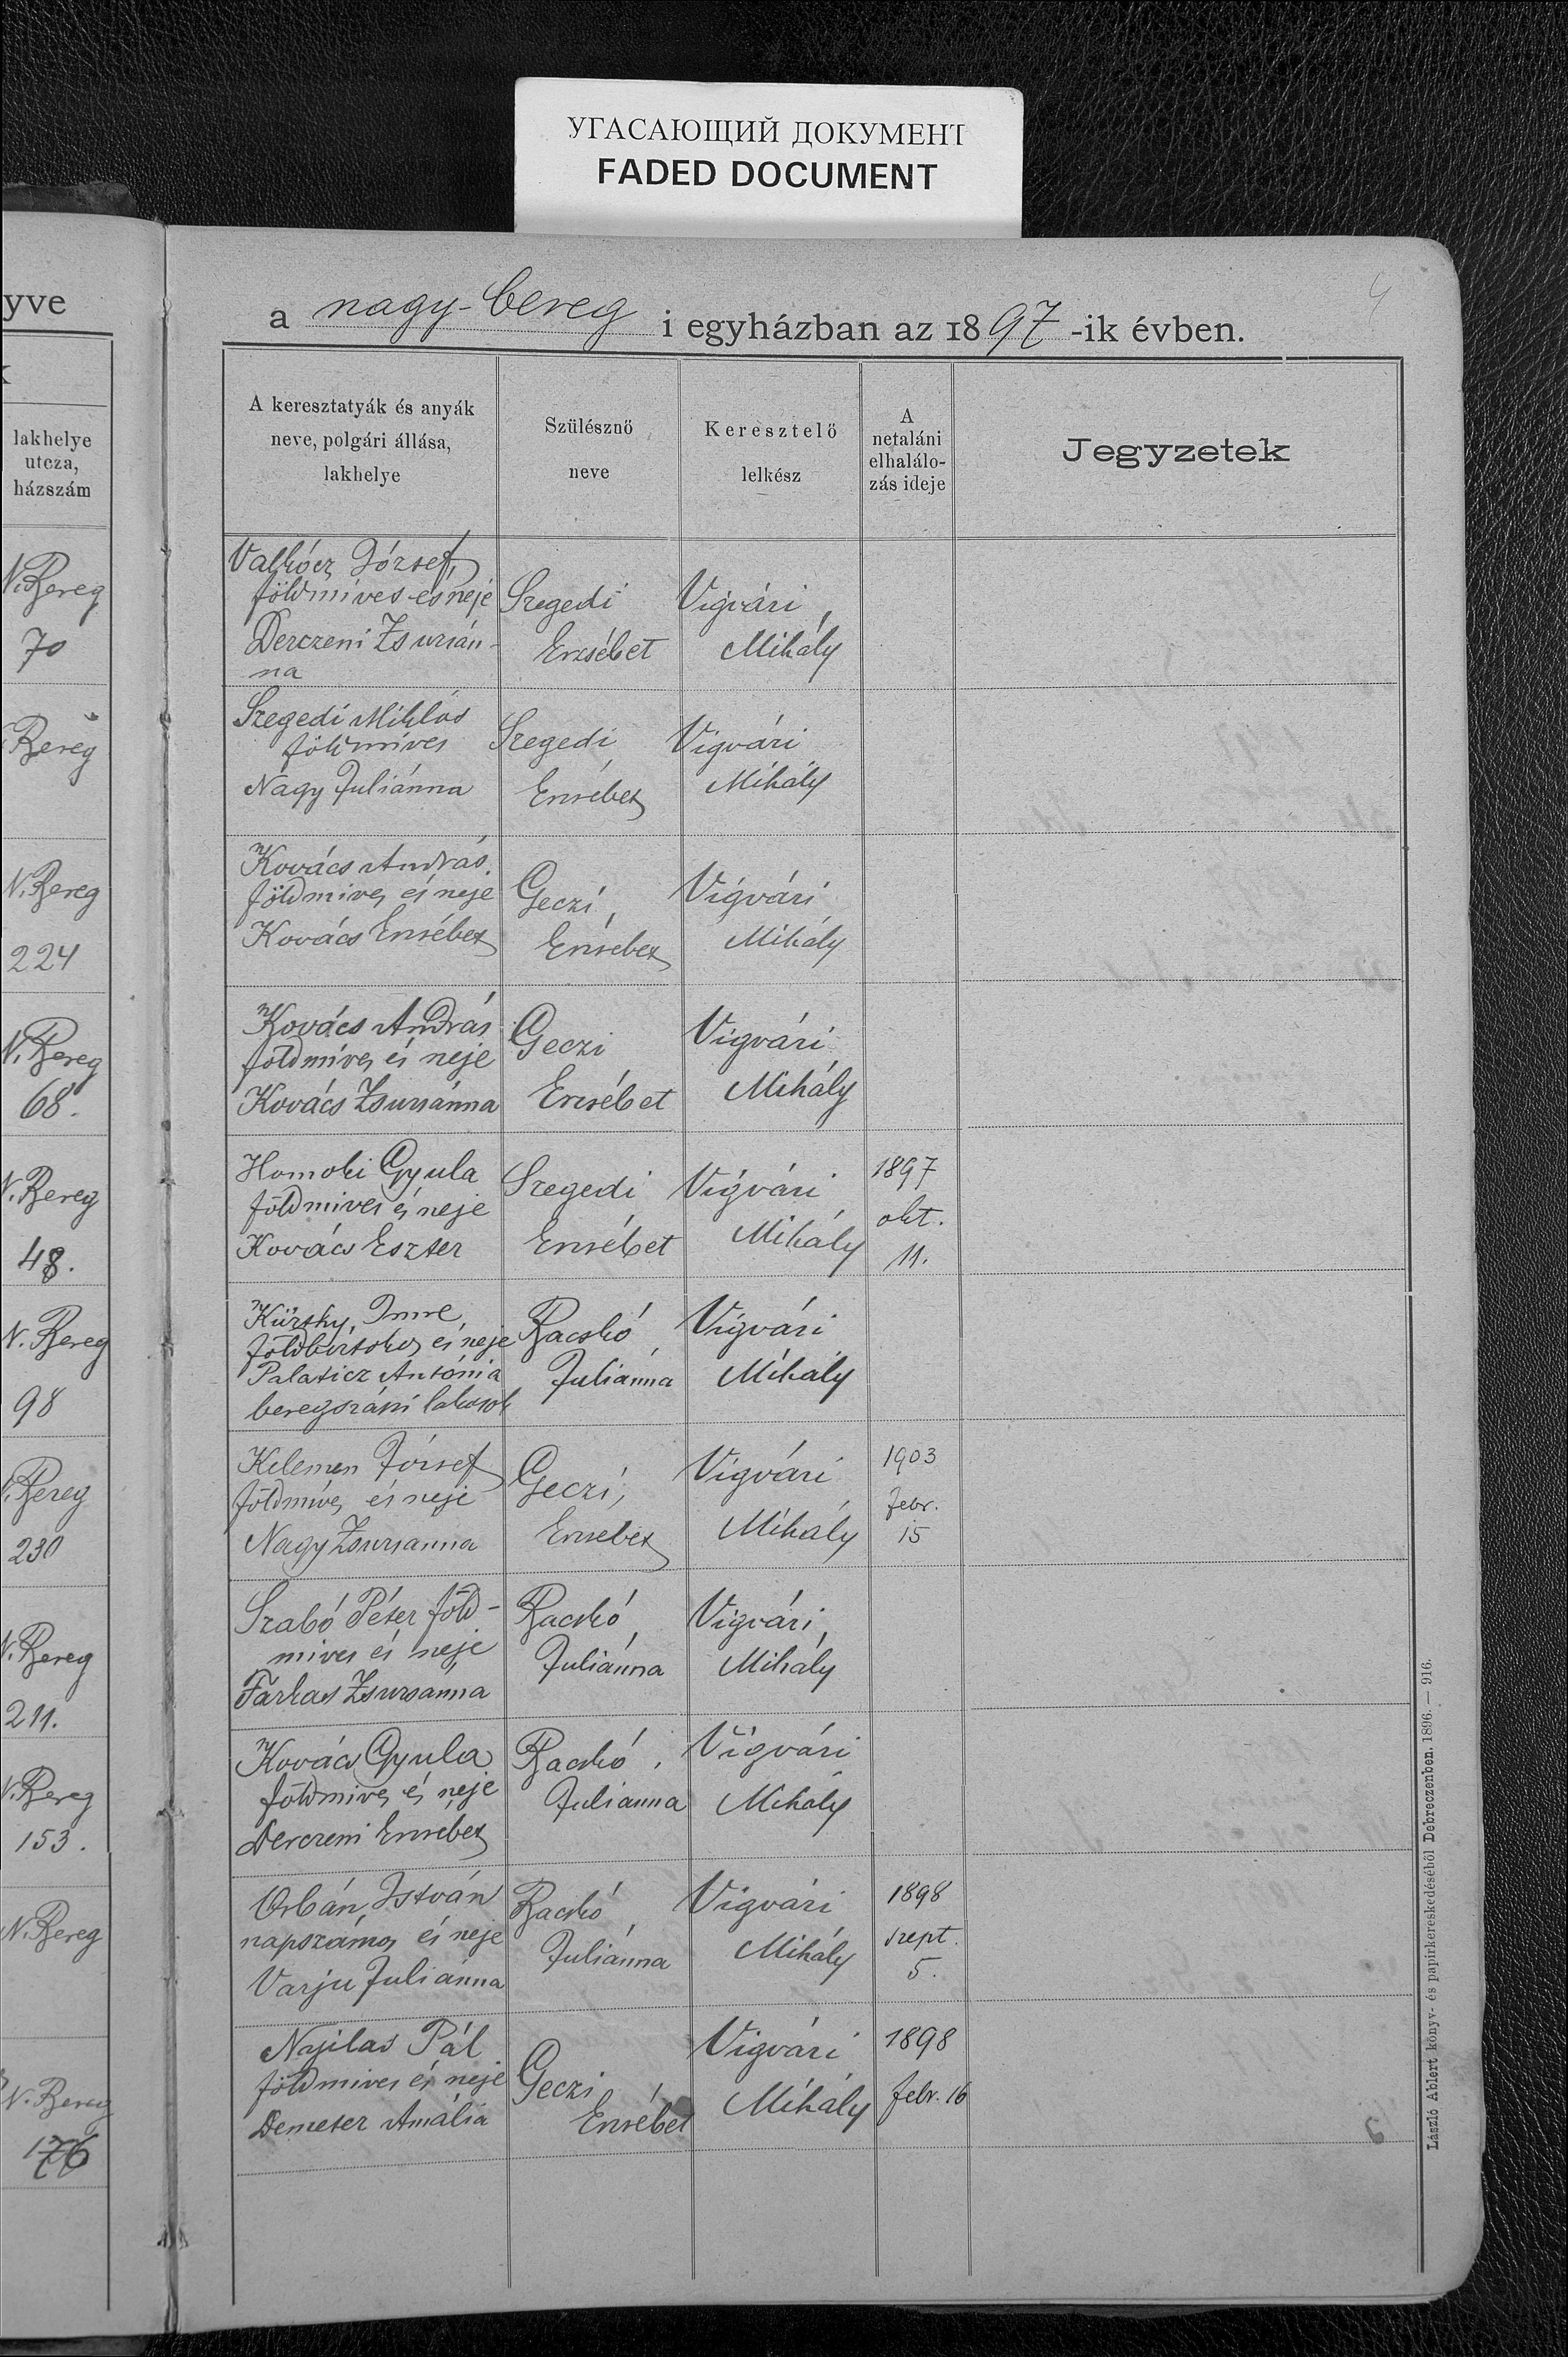 УГАСАЮЩИЙ ДОКУМЕНТ
FADED DOCUMENT
yve
lakhelye
utcza,
házszám
N. Bereg
70
Bereg
N. Bereg
224
N. Bereg
68.
N. Bereg
48.
N. Bereg
98
Bereg
230
N. Bereg
211.
N. Bereg
153.
N. Bereg
N. Bereg
176
4
a nagy-bereg i egyházban az 1897-ik évben.
A keresztatyák és anyák
neve, polgári állása,
lakhelye
Szülésznő
neve
Keresztelő
lelkész
A
netaláni
elhalálo-
zás ideje
Jegyzetek
József,
földmíves és neje
Derczeni Zsuzsán-
na
Szegedi
Erzsébet
Vígvári
Mihály
Szegedi Miklós
földmíves
Nagy Juliánna
Szegedi
Erzsébet
Vígvári
Mihály
Kovács András.
földmíves és neje
Kovács Erzsébet
Geczi
Erzsébet
Vígvári
Mihály
Kovács András
földmíves és neje
Kovács Zsuzsánna
Geczi
Erzsébet
Vígvári
Mihály
Homoki Gyula
földmives és neje
Kovács Eszter
Szegedi
Erzsébet
Vígvári
Mihály
1897
okt.
11.
Kürthy Imre
földbirtokos és neje
Palaticz Antónia
beregszászi lakosok
Bacskó
Juliánna
Vígvári
Mihály
Kelemen József
földmíves és neje
Nagy Zsuzsanna
Geczi
Erzsebet
Vígvári
Mihály
1903
febr.
15
Szabó Péter föld-
mives és neje
Farkas Zsuzsanna
Bacskó
Juliánna
Vígvári
Mihály
Kovács Gyula
földmives és neje
Derczeni Erzsébet
Bacskó
Juliánna
Vígvári
Mihály
Orbán István
napszámos és neje
Varju Juliánna
Bacskó
Juliánna
Vígvári
Mihály
1898
szept.
5.
Nyilas Pál
földmives és neje
Demeter Amália
Geczi
Erzsébet
Vígvári
Mihály
1898
febr. 16
László Albert könyv- és papirkereskedéséből Debreczenben. 1896. — 916.